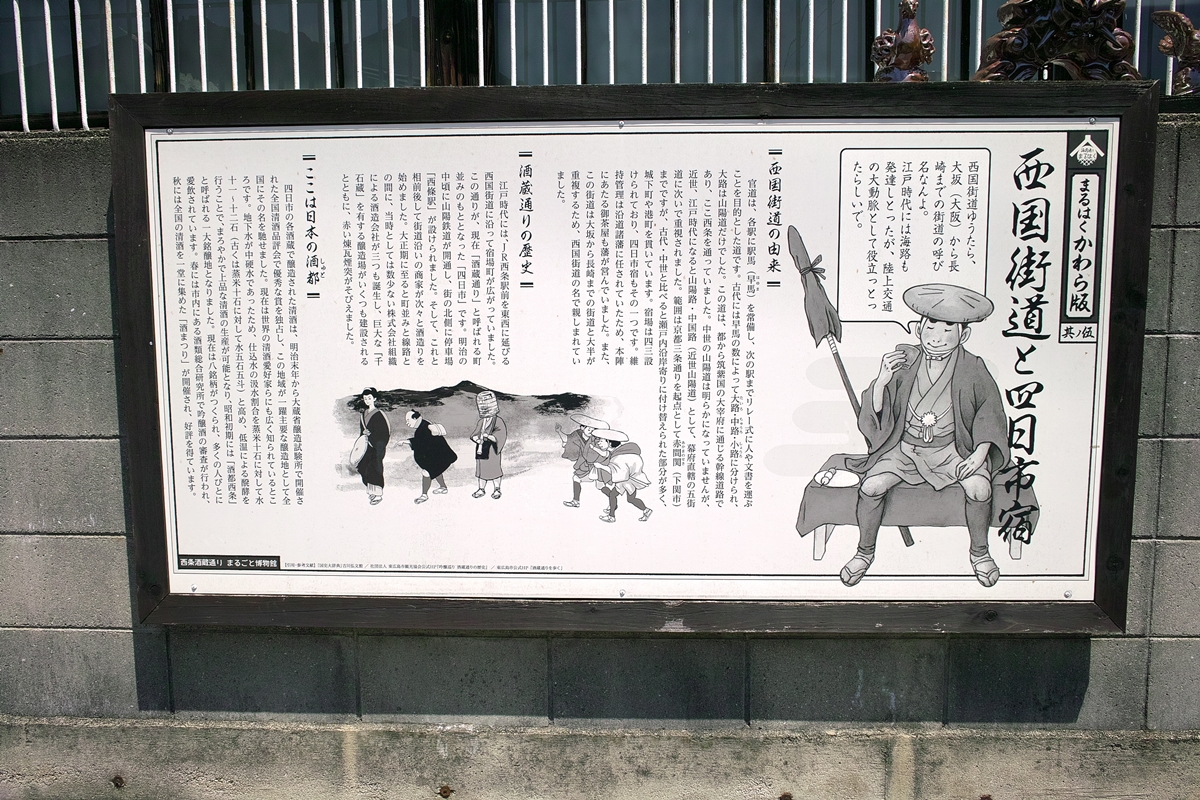 まるはくかわら版
其ノ伍
西国街道と四日市宿
西国街道ゆうたら、
大坂(大阪)から長
崎までの街道の呼び
名なんよ。
江戸時代には海路も
発達しとったが、陸上交通
の大動脈として役立っとっ
たらしいで。
西国街道の由来
官道は、各駅に駅馬(早馬)を常備し、次の駅までリレー式に人や文書を運ぶ
ことを目的とした道です。古代には早馬の数によって大路・中路・小路に分けられ、
大路は山陽道だけでした。この道は、都から筑紫国の大宰府に通じる幹線道路で
あり、ここ西条を通っていました。中世の山陽道は明らかになっていませんが、
近世、江戸時代になると山陽路・中国路(近世山陽道)として、幕府直轄の五街
道に次いで重視されました。範囲は京都三条通りを起点として赤間関(下関市)
までですが、古代・中世と比べると瀬戸内沿岸寄りに付け替えられた部分が多く、
城下町や港町を貫いています。宿場は四三設
けられており、四日市宿もその一つです。維
持管理は沿道諸藩に任されていたため、本陣
にあたる御茶屋も藩が営んでいました。また、
この街道は大坂から長崎までの街道と大半が
重複するため、西国街道の名で親しまれてい
ました。
酒蔵通りの歴史
江戸時代には、JR西条駅前を東西に延びる
西国街道に沿って宿場町が広がっていました。
この通りが、現在「酒蔵通り」と呼ばれる町
並みのもととなった「四日市」です。明治の
中頃に山陽鉄道が開通し、街の北側に停車場
「西條駅」が設けられました。そして、これと
相前後して街道沿いの商家が次々と酒造りを
始めました。大正期に至ると町並みと線路と
の間に、当時としては数少ない株式会社組織
による酒造会社が三つも誕生し、巨大な「千
石蔵」を有する醸造場がいくつも建設される
とともに、赤い煉瓦煙突がそびえました。
ここは日本の酒都
四日市の各酒蔵で醸造された清酒は、明治末年から大蔵省醸造試験所で開催さ
れた全国清酒品評会で優秀な賞を独占し、この地域が一躍主要な醸造地として全
国にその名を馳せました。現在は世界の清酒愛好家らにも広く知られているとこ
ろです。地下水が中硬水であったため、仕込水の汲水割合を蒸米十石に対して水
十一~十二石(古くは蒸米十石に対して水五石五斗)と高め、低温による醗酵を
行うことで、まろやかで上品な清酒の生産が可能となり、昭和初期には「酒都西条」
と呼ばれる一大銘醸地となりました。現在は八銘柄がつくられ、多くの人びとに
愛飲されています。春には市内にある酒類総合研究所で吟醸酒の審査が行われ、
秋には全国の清酒を一堂に集めた「酒まつり」が開催され、好評を得ています。
西条酒蔵通り まるごと博物館